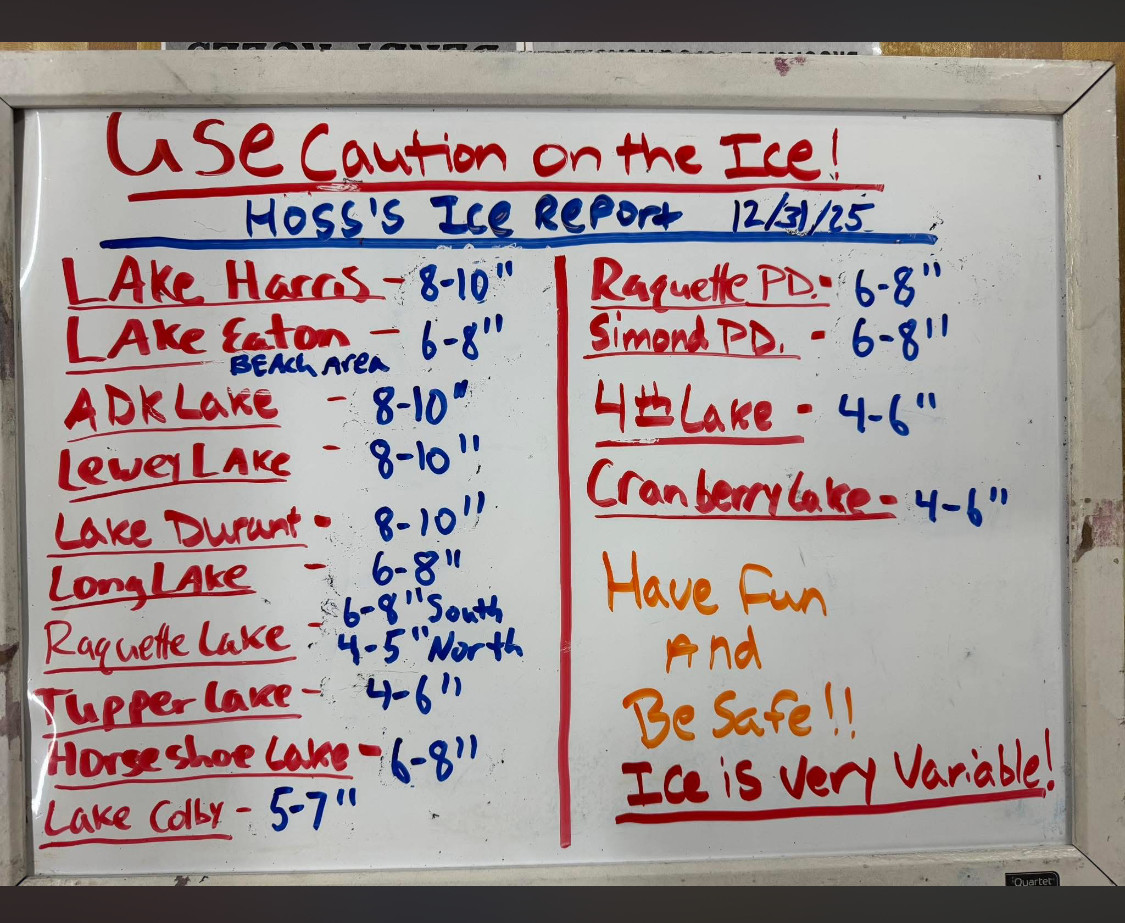 Use Caution on the Ice!
Hoss's Ice Report 12/31/25
LAke Harris - 8-10"
LAke Eaton - 6-8"
BEAch Area
ADK Lake - 8-10"
Lewey LAke - 8-10"
Lake Durant - 8-10"
Long LAke - 6-8"
Raquette Lake - 6-8" South
4-5" North
Tupper Lake - 4-6"
Horseshoe Lake - 6-8"
Lake Colby - 5-7"
Raquette PD. - 6-8"
Simond PD. - 6-8"
4th Lake - 4-6"
Cranberry Lake - 4-6"
Have Fun
And
Be Safe!!
Ice is very Variable!
Quartet